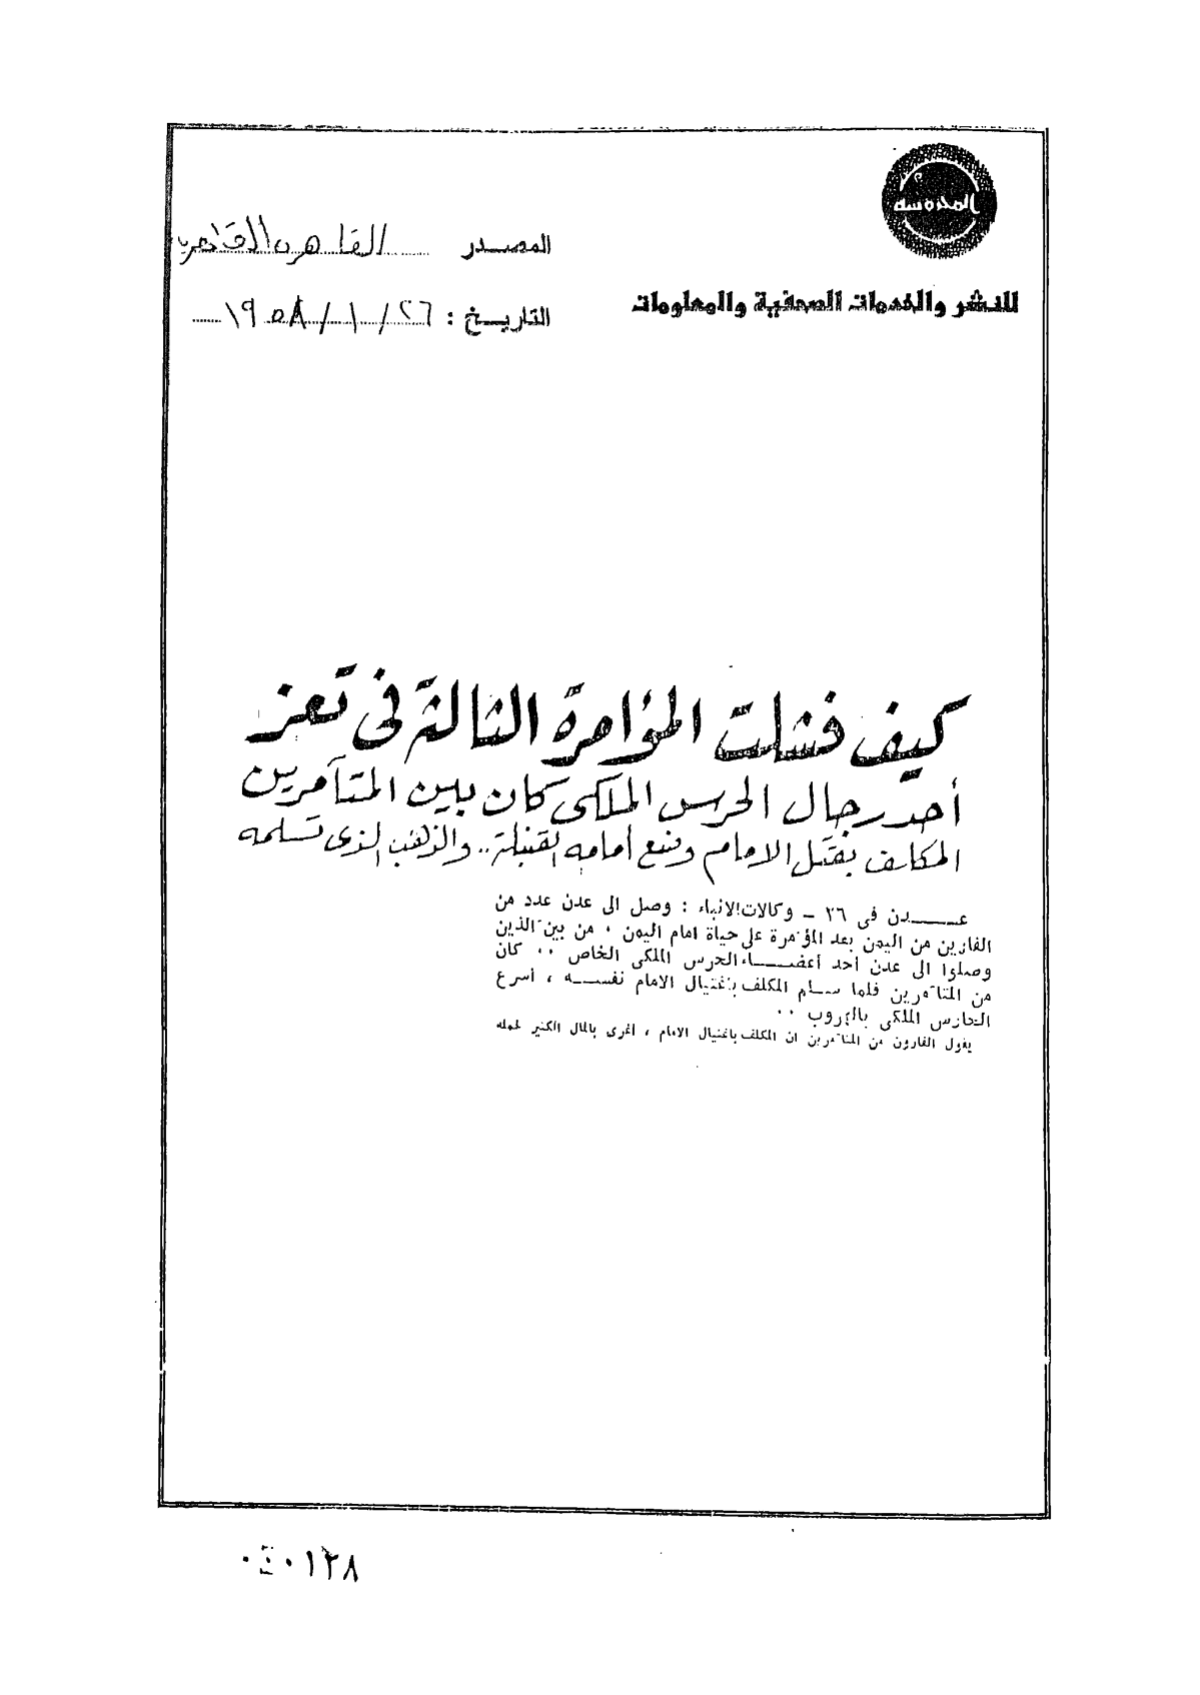 المحروسة
للنشر والخدمات الصحفية والمعلومات
المصدر القاهرة القاهرية
التاريخ : ٢٦/١/١٩٥٨
كيف فشلت المؤامرة الثالثة فى تعز
أحد رجال الحرس الملكى كان بين المتآمرين
المكلف بقتل الامام وضع أمامه القنبلة.. والذهب الذى تسلمه
عــدن فى ٢٦ - وكالات الانباء : وصل الى عدن عدد من
الفارين من اليمن بعد المؤامرة على حياة امام اليمن . من بين الذين
وصلوا الى عدن أحد أعضــاء الحرس الملكى الخاص .. كان
من المتآمرين فلما ســلم المكلف باغتيال الامام نفســه ، أسرع
الحارس الملكى بالهروب ..
يقول الفارون من المتآمرين ان المكلف باغتيال الامام ، أغرى بالمال الكثير لحمله